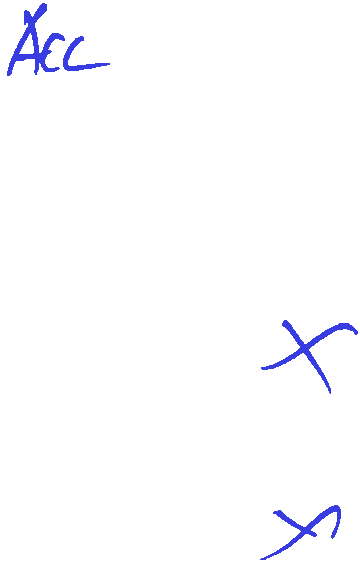 Acc
X
X